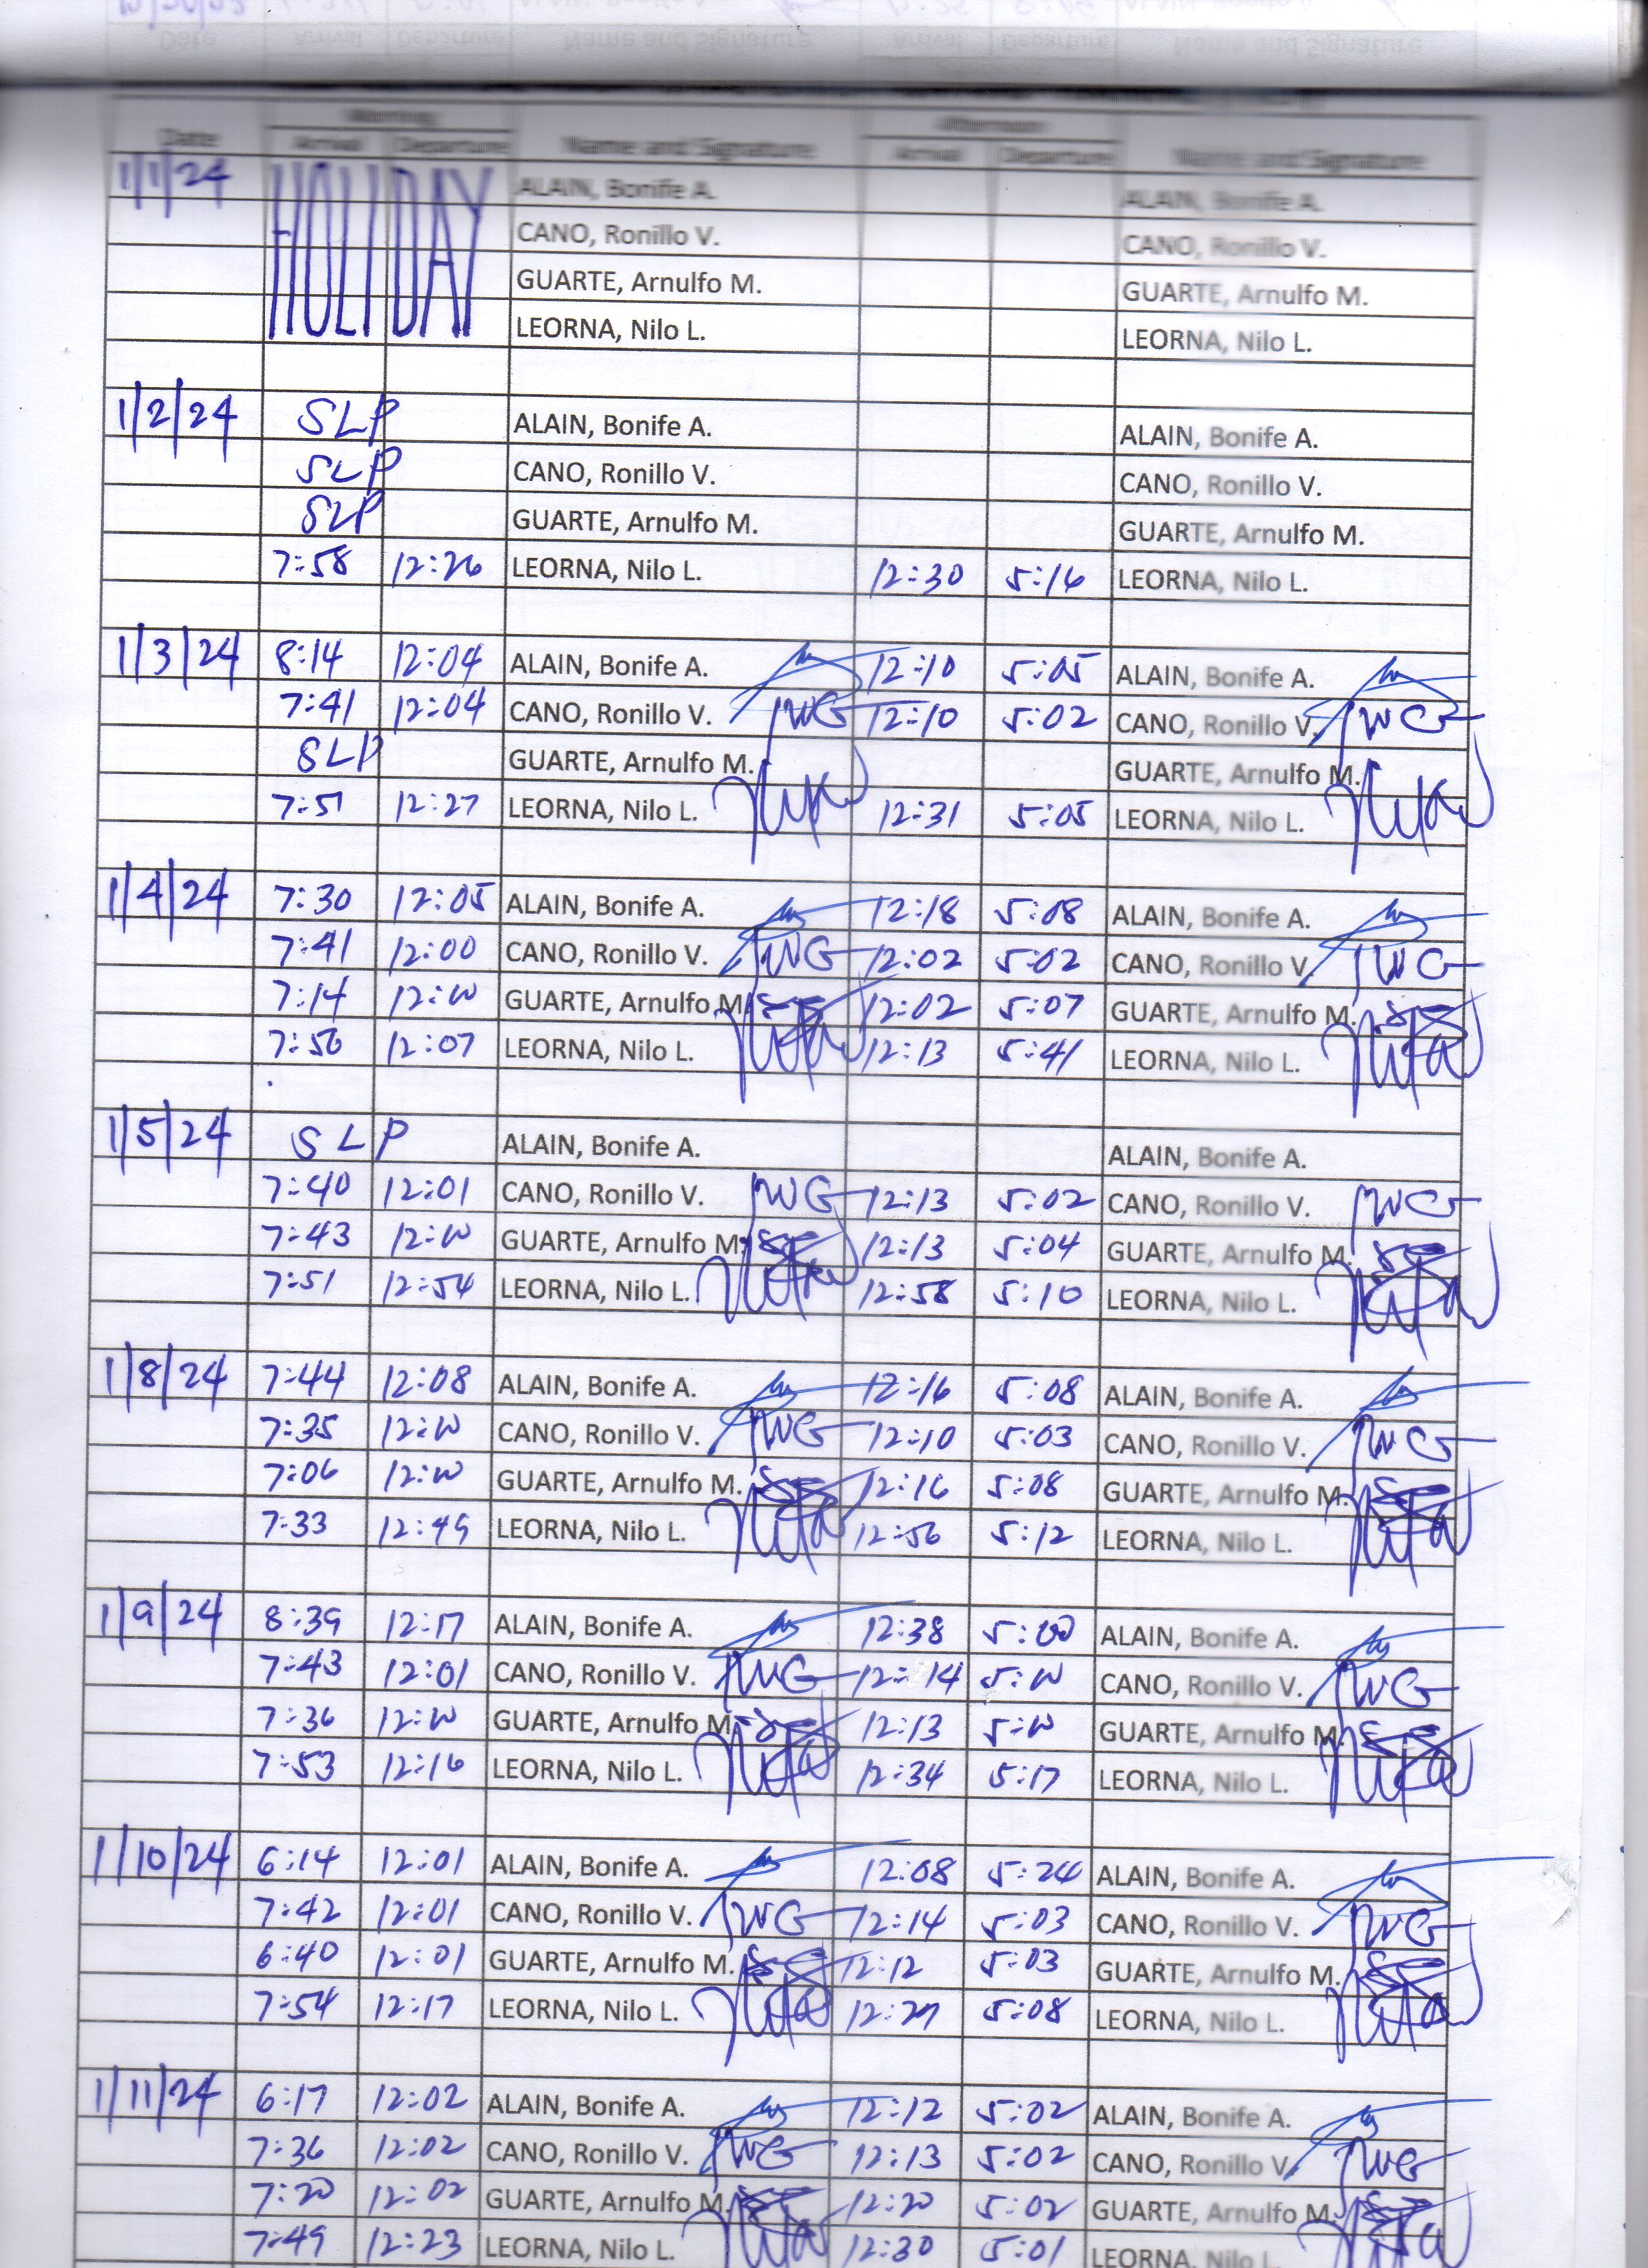 Morning Afternoon
Date Arrival Departure Name and Signature Arrival Departure Name and Signature
1/1/24 HOLIDAY ALAIN, Bonife A. ALAIN, Bonife A.
CANO, Ronillo V. CANO, Ronillo V.
GUARTE, Arnulfo M. GUARTE, Arnulfo M.
LEORNA, Nilo L. LEORNA, Nilo L.
1/2/24 SLP ALAIN, Bonife A. ALAIN, Bonife A.
SLP CANO, Ronillo V. CANO, Ronillo V.
SLP GUARTE, Arnulfo M. GUARTE, Arnulfo M.
7:58 12:26 LEORNA, Nilo L. 12:30 5:16 LEORNA, Nilo L.
1/3/24 8:14 12:04 ALAIN, Bonife A. 12:10 5:05 ALAIN, Bonife A.
7:41 12:04 CANO, Ronillo V. 12:10 5:02 CANO, Ronillo V.
SLP GUARTE, Arnulfo M. GUARTE, Arnulfo M.
7:51 12:27 LEORNA, Nilo L. 12:31 5:05 LEORNA, Nilo L.
1/4/24 7:30 12:05 ALAIN, Bonife A. 12:18 5:08 ALAIN, Bonife A.
7:41 12:00 CANO, Ronillo V. 12:02 5:02 CANO, Ronillo V.
7:14 12:00 GUARTE, Arnulfo M. 12:02 5:07 GUARTE, Arnulfo M.
7:56 12:07 LEORNA, Nilo L. 12:13 5:41 LEORNA, Nilo L.
1/5/24 SLP ALAIN, Bonife A. ALAIN, Bonife A.
7:40 12:01 CANO, Ronillo V. 12:13 5:02 CANO, Ronillo V.
7:43 12:00 GUARTE, Arnulfo M. 12:13 5:04 GUARTE, Arnulfo M.
7:51 12:54 LEORNA, Nilo L. 12:58 5:10 LEORNA, Nilo L.
1/8/24 7:44 12:08 ALAIN, Bonife A. 12:16 5:08 ALAIN, Bonife A.
7:35 12:00 CANO, Ronillo V. 12:10 5:03 CANO, Ronillo V.
7:06 12:00 GUARTE, Arnulfo M. 12:16 5:08 GUARTE, Arnulfo M.
7:33 12:49 LEORNA, Nilo L. 12:56 5:12 LEORNA, Nilo L.
1/9/24 8:39 12:17 ALAIN, Bonife A. 12:38 5:00 ALAIN, Bonife A.
7:43 12:01 CANO, Ronillo V. 12:14 5:00 CANO, Ronillo V.
7:36 12:00 GUARTE, Arnulfo M. 12:13 5:00 GUARTE, Arnulfo M.
7:53 12:16 LEORNA, Nilo L. 12:34 5:17 LEORNA, Nilo L.
1/10/24 6:14 12:01 ALAIN, Bonife A. 12:08 5:24 ALAIN, Bonife A.
7:42 12:01 CANO, Ronillo V. 12:14 5:03 CANO, Ronillo V.
6:40 12:01 GUARTE, Arnulfo M. 12:12 5:03 GUARTE, Arnulfo M.
7:54 12:17 LEORNA, Nilo L. 12:27 5:08 LEORNA, Nilo L.
1/11/24 6:17 12:02 ALAIN, Bonife A. 12:12 5:02 ALAIN, Bonife A.
7:36 12:02 CANO, Ronillo V. 12:13 5:02 CANO, Ronillo V.
7:20 12:02 GUARTE, Arnulfo M. 12:20 5:02 GUARTE, Arnulfo M.
7:49 12:23 LEORNA, Nilo L. 12:30 5:01 LEORNA, Nilo L.